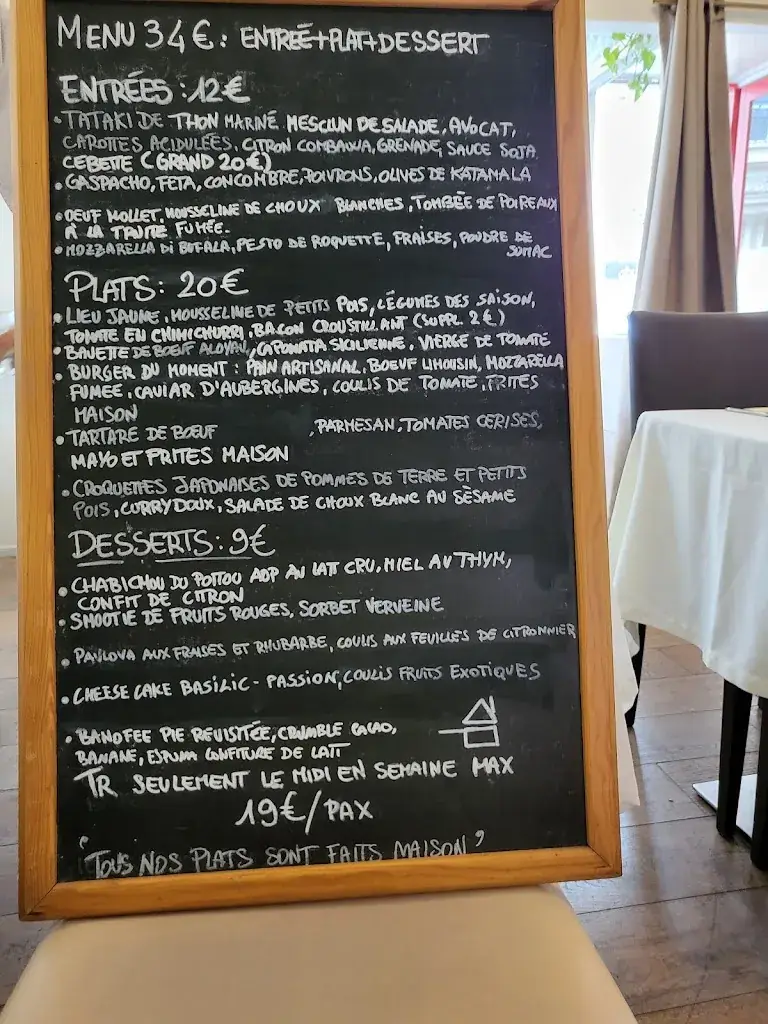 MENU 34€: ENTREÉ+PLAT+DESSERT
ENTRÉES: 12€
• TATAKI DE THON MARINÉ MESCLUN DE SALADE, AVOCAT,
CAROTTES ACIDULÉES, CITRON COMBAWA, GRENADE, SAUCE SOJA
CEBETTE (GRAND 20€)
• GASPACHO, FETA, CONCOMBRE, POIVRONS, OLIVES DE KATAMALA
• OEUF MOLLET, MOUSSELINE DE CHOUX BLANCHES, TOMBÉE DE POIREAUX
À LA TRUITE FUMÉE.
• MOZZARELLA DI BUFALA, PESTO DE ROQUETTE, FRAISES, POUDRE DE
SUMAC
PLATS: 20€
• LIEU JAUNE, MOUSSELINE DE PETITS POIS, LÉGUMES DES SAISON,
TOMATE EN CHIMICHURRI, BACON CROUSTILLANT (SUPPL. 2€)
• BAVETTE DE BOEUF ALOYAU, CAPONATA SICILIENNE, VIERGE DE TOMATE
• BURGER DU MOMENT: PAIN ARTISANAL, BOEUF LIMOUSIN, MOZZARELLA
FUMÉE, CAVIAR D'AUBERGINES, COULIS DE TOMATE, FRITES
MAISON
• TARTARE DE BOEUF , PARMESAN, TOMATES CERISES,
MAYO ET FRITES MAISON
• CROQUETTES JAPONAISES DE POMMES DE TERRE ET PETITS
POIS, CURRY DOUX, SALADE DE CHOUX BLANC AU SÈSAME
DESSERTS: 9€
• CHABICHOU DU POITOU AOP AU LAIT CRU, MIEL AU THYM,
CONFIT DE CITRON
• SMOOTIE DE FRUITS ROUGES, SORBET VERVEINE
• PAVLOVA AUX FRAISES ET RHUBARBE, COULIS AUX FEUILLES DE CITRONNIER
• CHEESE CAKE BASILIC - PASSION, COULIS FRUITS EXOTIQUES
• BANOFEE PIE REVISITÉE, CRUMBLE CACAO,
BANANE, ESPUMA CONFITURE DE LAIT
TR SEULEMENT LE MIDI EN SEMAINE MAX
19€/PAX
"TOUS NOS PLATS SONT FAITS MAISON"